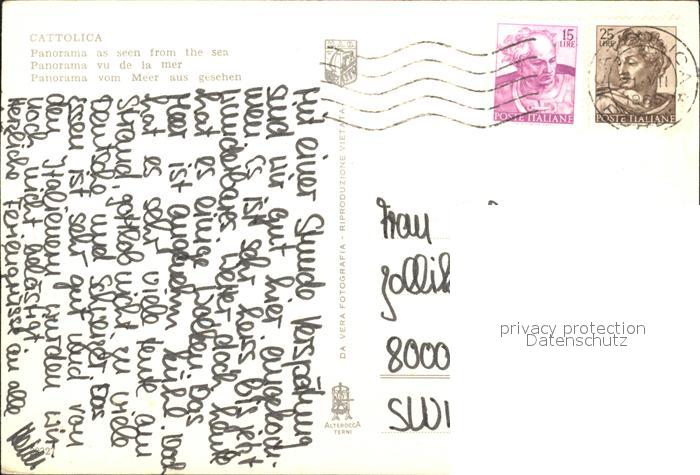 CATTOLICA
Panorama as seen from the sea
Panorama vu de la mer
Panorama vom Meer aus gesehen
Mit einer Stunde Verspätung
sind wir gut hier
Es ist sehr heiss
wunderbares Wetter doch heute
hat es einige Wolken. Das
Meer ist angenehm kühl. Doch
hat es sehr viele Leute am
Strand, gottlob nicht zu viele
Deutsche und Schweizer. Das
Essen ist sehr gut und von
den Italienern wurden wir
noch nicht belästigt.
Herzliche Feriengrüsse an alle
DA VERA FOTOGRAFIA - RIPRODUZIONE VIETATA
ALTEROCCA
TERNI
15
LIRE
POSTE ITALIANE
25
LIRE
POSTE ITALIANE
Frau
Zolli
8000
SWI
privacy protection
Datenschutz